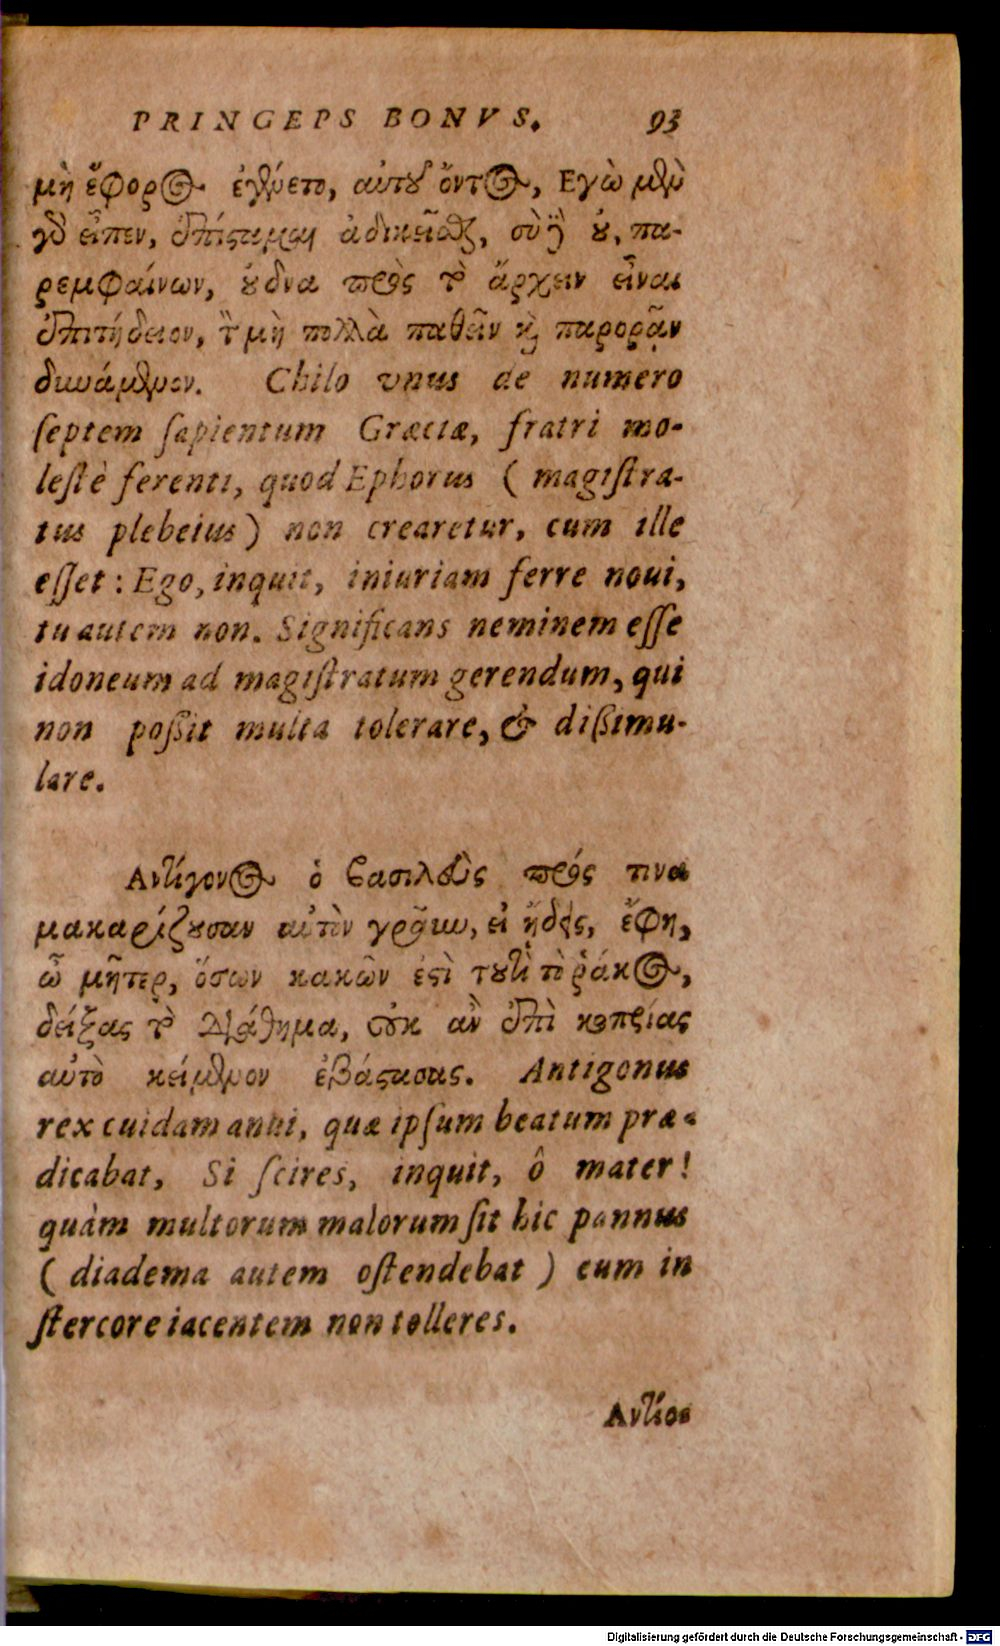 PRINCEPS BONVS. 93
μὴ ἔφορος ἐγένετο, αὐτοῦ ὄντος, Εγὼ μὲν
γὰρ εἶπεν, ἐπίσταμαι ἀδικεῖσθαι, σὺ δὲ οὔ, πα-
ρεμφαίνων, οὐδένα πρὸς τὸ ἄρχειν εἶναι
ἐπιτήδειον, τὸν μὴ πολλὰ παθεῖν καὶ παρορᾷν
δυνάμενον. Chilo vnus de numero
ſeptem ſapientum Græciæ, fratri mo-
leſtè ferenti, quod Ephorus ( magiſtra-
tus plebeius ) non crearetur, cum ille
eſſet : Ego, inquit, iniuriam ferre noui,
tu autem non. Significans neminem eſſe
idoneum ad magiſtratum gerendum, qui
non poßit multa tolerare, & dißimu-
lare.
Αντίγονος ὁ βασιλεὺς πρός τινα
μακαρίζουσαν αὐτὸν γραῦν, εἰ ᾔδεις, ἔφη,
ὦ μῆτερ, ὅσων κακῶν ἐστὶ τουτὶ τὸ ῥάκος,
δείξας τὸ διάθημα, οὐκ ἂν ἐπὶ κοπρίας
αὐτὸ κείμενον ἐβάστασας. Antigonus
rex cuidam anui, quæ ipſum beatum præ-
dicabat, Si ſcires, inquit, ô mater!
quàm multorum malorum ſit hic pannus
( diadema autem oſtendebat ) eum in
ſtercore iacentem non tolleres.
Αντίο-
Digitalisierung gefördert durch die Deutsche Forschungsgemeinschaft - DFG